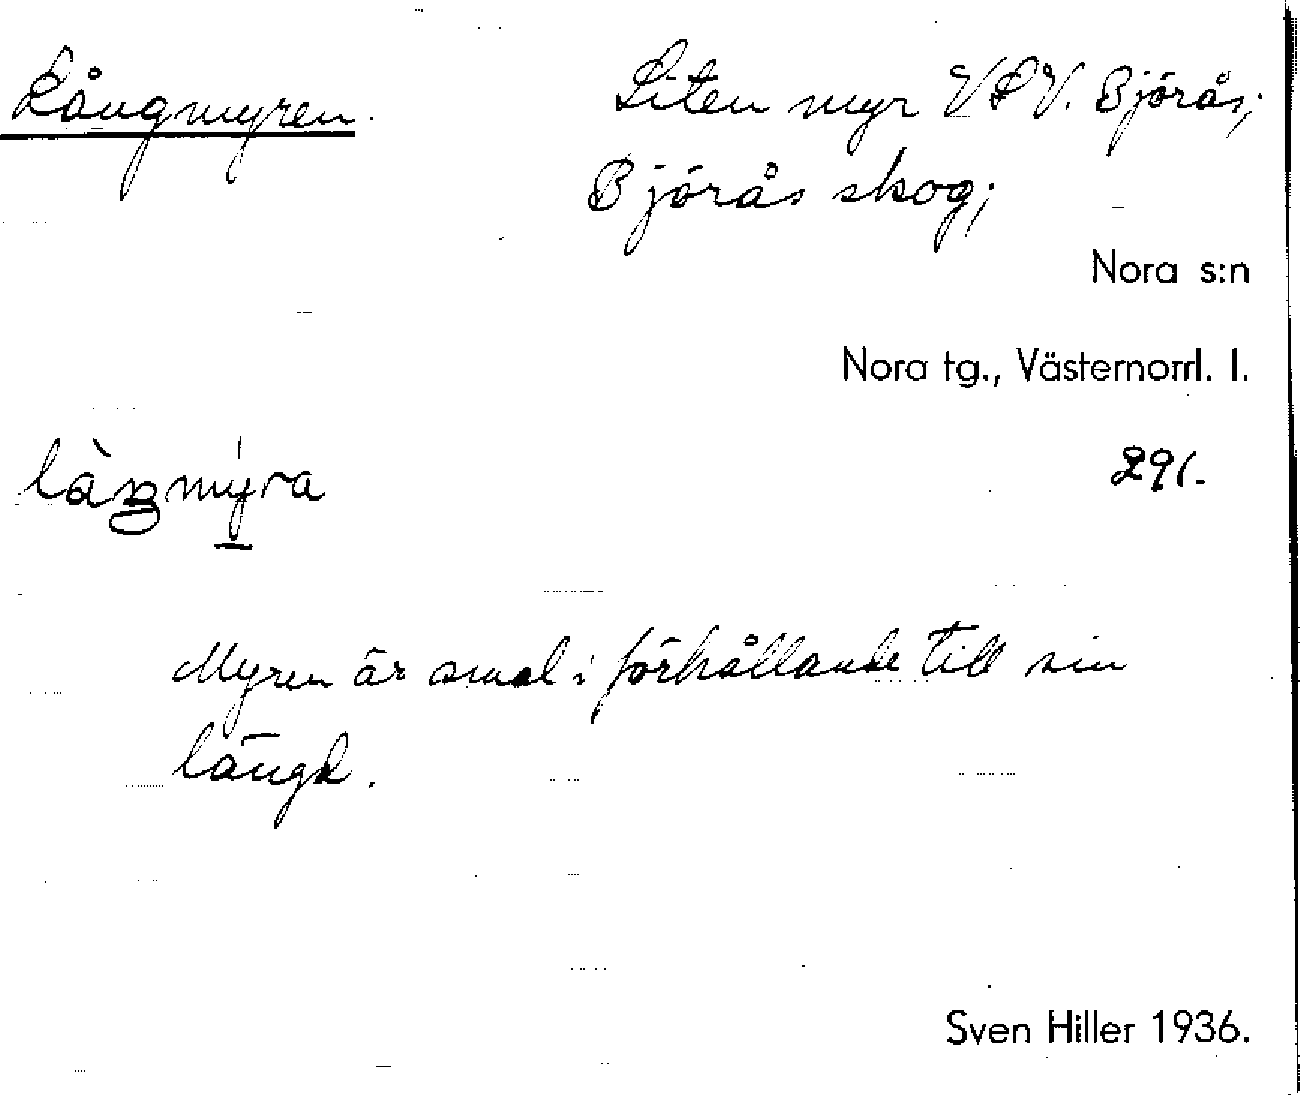 Långmyren.
Liten myr VSV. Björås;
Björås skog;
Nora s:n
Nora tg., Västernorrl. l.
291.
Myren är smal i förhållande till sin
längd.
Sven Hiller 1936.